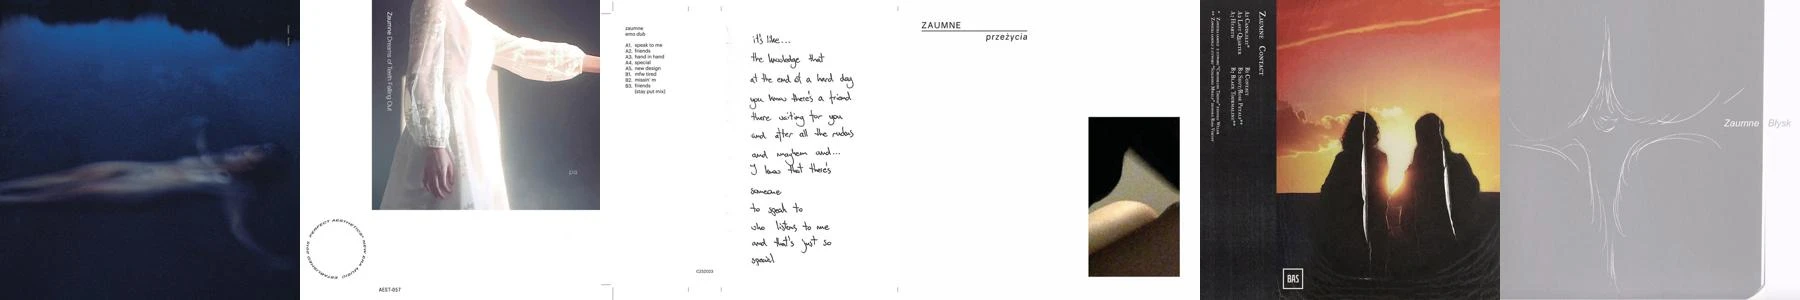 Zaumne Dreams of Teeth Falling Out
pa
PERFECT AESTHETICS NEW ERA MUSIC ESTABLISHED 2015
AEST-057
zaumne
emo dub
A1. speak to me
A2. friends
A3. hand in hand
A4. special
A5. new design
B1. mfw tired
B2. missin' m
B3. friends
(stay put mix)
C232023
it's like...
the knowledge that
at the end of a hard day
you know there's a friend
there waiting for you
and after all the rudors
and mayhem and...
I know that there's
someone
to speak to
who listens to me
and that's just so
special
ZAUMNE
przeżycia
ZAUMNE CONTACT
BAS
Zaumne Błysk